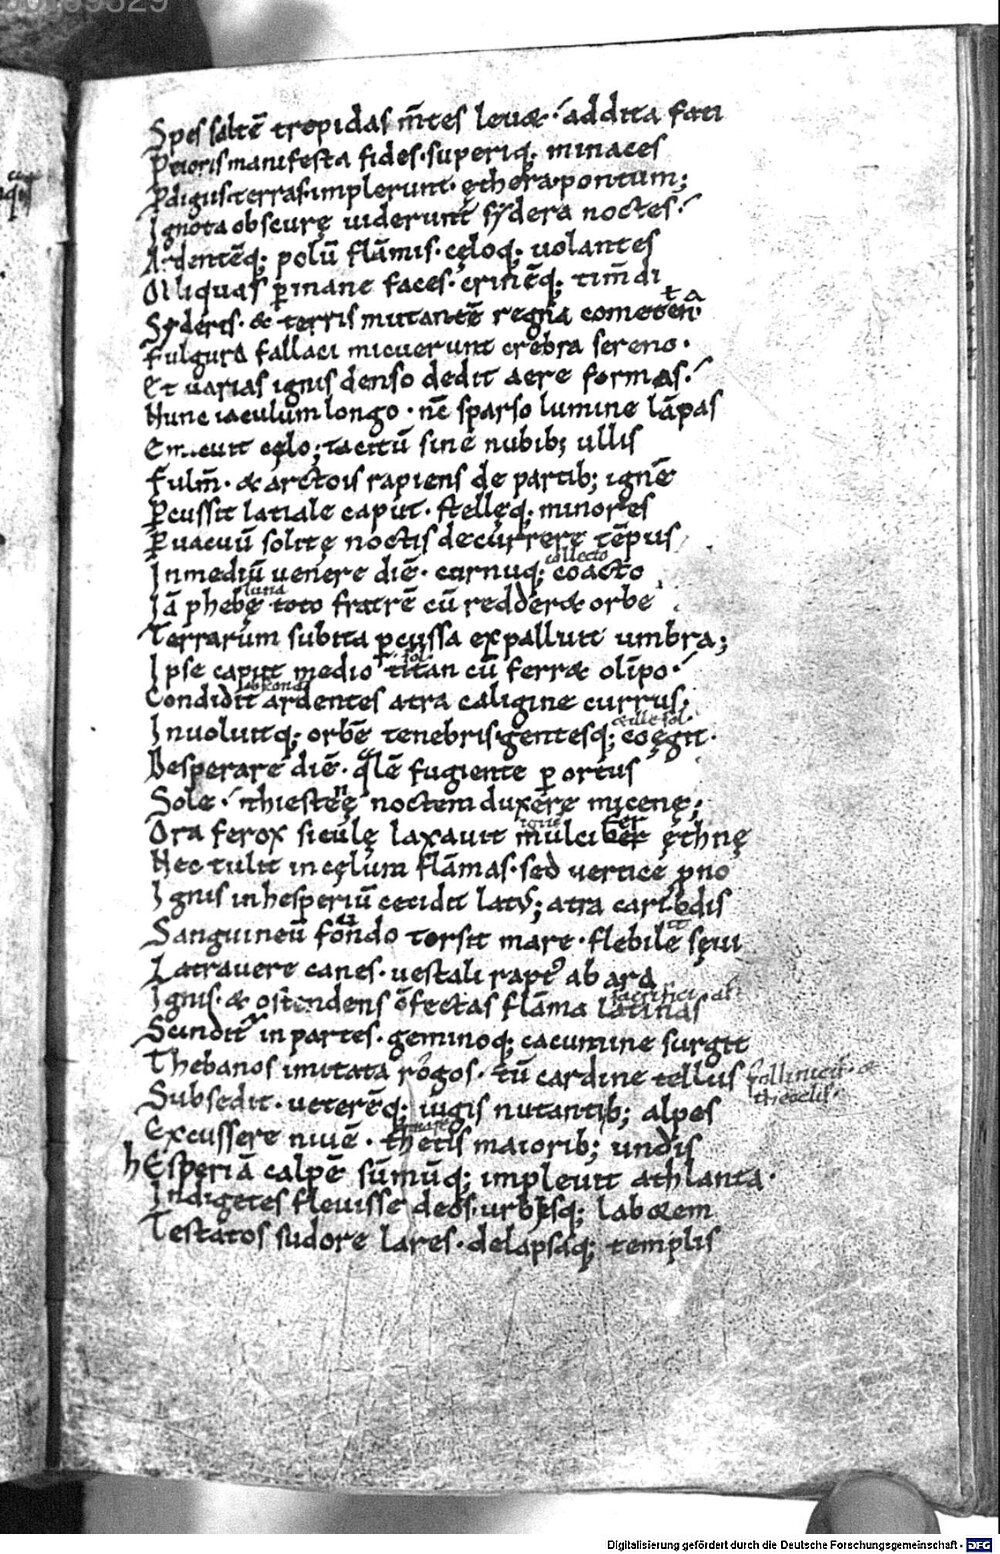 Spes saltē trepidas m̄tes leuæ· addita fati
Peioris manifesta fides· superiq; minaces
Ꝓdigiis terras· implerunt· ęthera· pontum;
Ignota obscurę uiderunt sydera noctes·
Ardentēq; polū flāmis· cęloq; uolantes
Obliquas ꝑ inane faces· crinēq; tim̄di
Syderis· & terris mutantē regna cometen
Fulgura fallaci micuerunt crebra sereno·
Et uarias ignis denso dedit aere formas·
Nunc iaculum longo· nc̄ sparso lumine lāpas
Emicuit cęlo; tacitū sine nubib; ullis
Fulm̄· & arctois rapiens de partib; ignē
Ꝑcussit latiale caput· stellęq; minores
Ꝑ uacuū solitę noctis decurrere tēpus
collecto
In mediū uenere diē· cornuq; coacto
luna
Iā phebę toto fratrē cū redderæ orbe
Terrarum subita ꝑcussa expalluit umbra;
sol
Ipse caput medio titan cū ferræ olīpo·
Condidit ardentes atra caligine currus;
ille sol
Inuoluitq; orbē tenebris· gentesq; coęgit·
Desperare diē· qualē fugiente ꝑ ortus
Sole· thiesteę noctem duxere micenę;
Ora ferox siculę laxauit mulciber ęthnę
Nec tulit in cęlum flāmas· sed uertice ꝓno
Ignis in hesperiū cecidit latus; atra caribdis
Sanguineū fondo torsit mare· flebile sęui
Latrauere canes· uestali rapt᾽ ab ara
Ignis· & ostendens ꝯfectas flāma latinas
Scindit᾽ in partes· geminoq; cacumine surgit
Thebanos imitata rogos· tū cardine tellus
Subsedit· ueterēq; iugis nutantib; alpes
Excussere niuē· thetis maiorib; undis
hEsperiā calpē sūmūq; impleuit athlanta·
Indigetes fleuisse deos· urbisq; laborem
Testatos sudore lares· delapsaq; templis
Digitalisierung gefördert durch die Deutsche Forschungsgemeinschaft · DFG